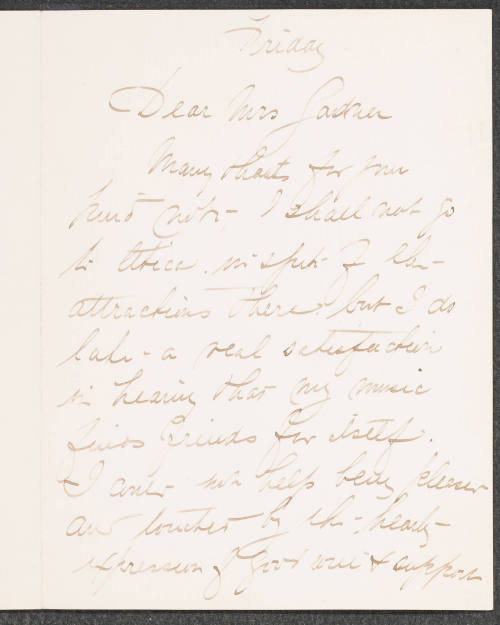 Friday
Dear Mrs Gardner
Many thanks for your
kind note - I shall not go
to Utica in spite of the
attractions there, but I do
take a real satisfaction
in hearing that my music
finds friends for itself.
I could not help being pleased
and touched by the hearty
expression of good will & support